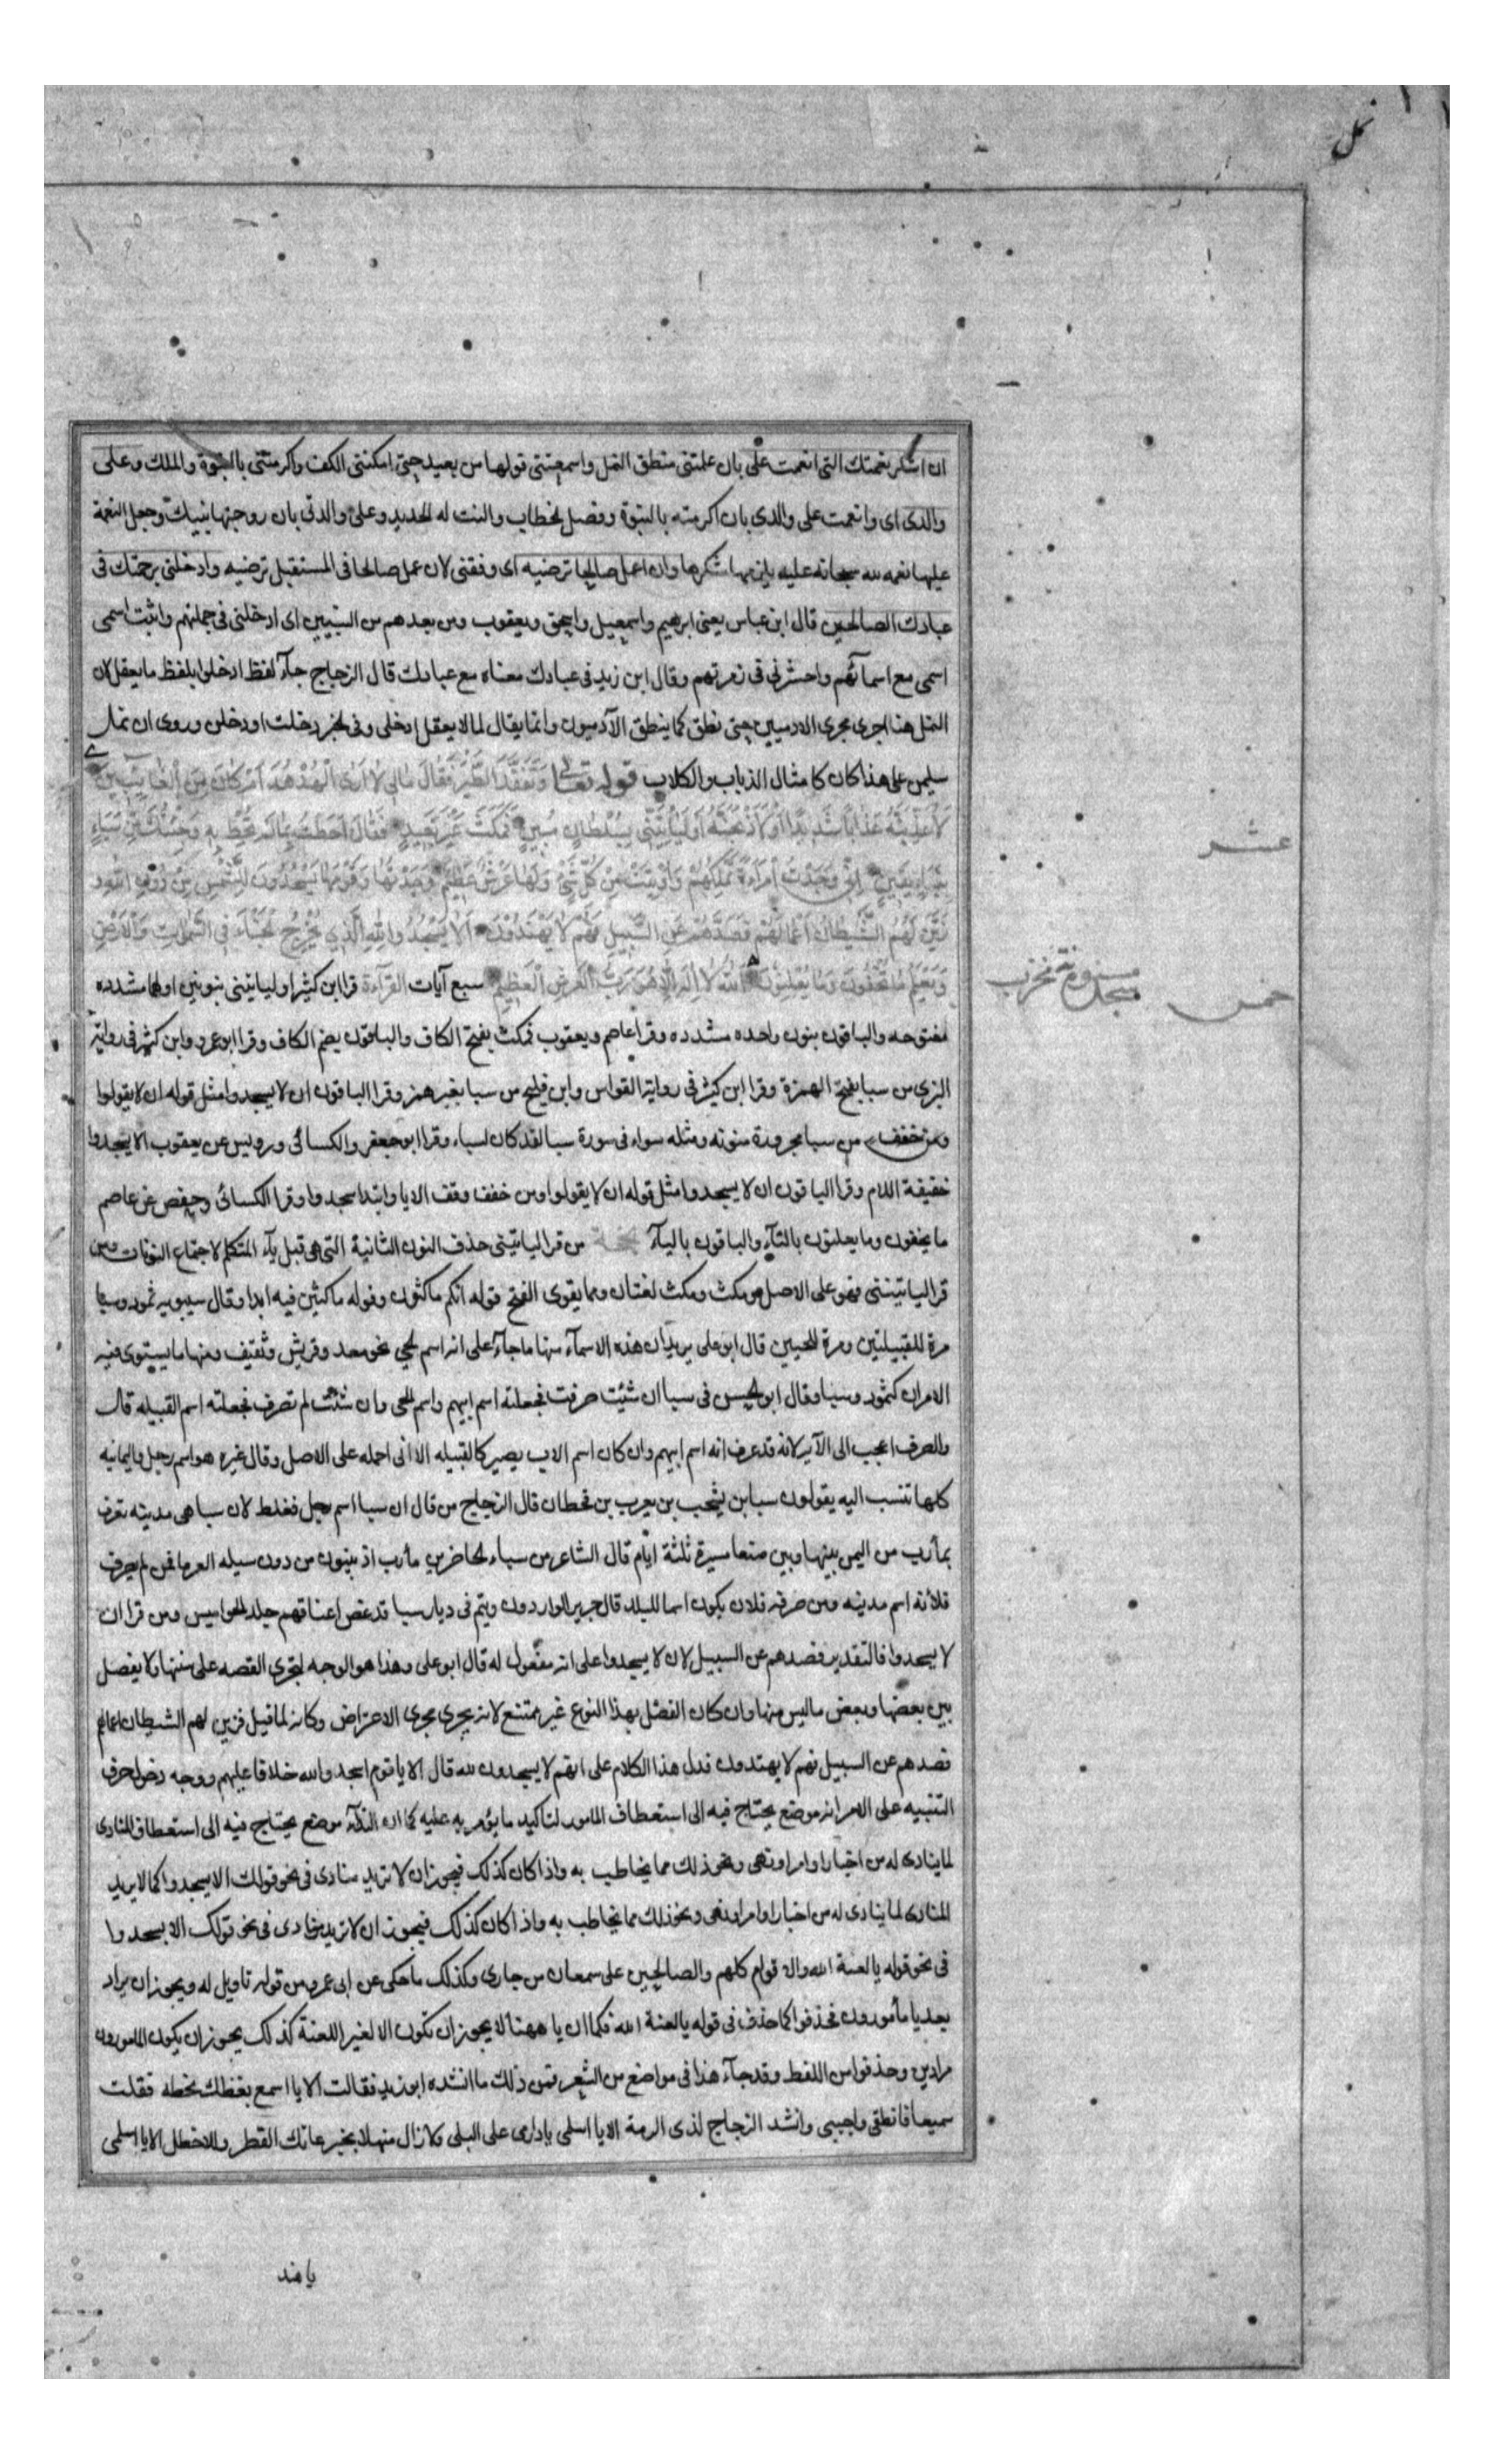 نمل
ان اشكر نعمتك التى انعمت على بان علمتنى منطق النمل واسمعتنى قولها من بعيد حتى امكننى الكف واكرمتنى بالنبوة والملك وعلى
والدى اى وانعمت على والدى بان اكرمته بالنبوة وفصل الخطاب والنت له الحديد وعلى والدتى بان زوجتها نبيك وجعل النعمة
عليها نعمه لله سبحانه عليه يلزمها شكرها وان اعمل صالحا ترضيه اى وفقنى لان عمل صالحا فى المستقبل ترضيه وادخلنى برحمتك فى
عبادك الصالحين قال ابن عباس يعنى ابرهيم واسمعيل واسحق ويعقوب ومن بعدهم من النبيين اى ادخلنى فى جملتهم واثبت اسمى
اسمى مع اسمآئهم واحشرنى فى زمرتهم وقال ابن زيد فى عبادك معناه مع عبادك قال الزجاج جآء لفظ ادخلوا بلفظ ما يعقل لان
النمل هنا اجرى مجرى الادميين حتى نطق كما ينطق الآدميون وانما يقال لما لا يعقل ادخلى وفى الخبر دخلت او دخلن وروى ان نمل
سليمن على هذا كان كامثال الذباب والكلاب قوله تعالى وَتَفَقَّدَ الطَّيْرَ فَقَالَ مَالِىَ لَا اَرَى الْهُدْهُدَ اَمْ كَانَ مِنَ الْغَائِبِينَ
لَاُعَذِّبَنَّهُ عَذَابًا شَدِيدًا اَوْ لَاَذْبَحَنَّهُ اَوْ لَيَاْتِيَنِّى بِسُلْطَانٍ مُبِينٍ فَمَكَثَ غَيْرَ بَعِيدٍ فَقَالَ اَحَطْتُ بِمَا لَمْ تُحِطْ بِهِ وَجِئْتُكَ مِنْ سَبَاءٍ
بِنَبَاءٍ يَقِينٍ اِنِّى وَجَدْتُ امْرَاَةً تَمْلِكُهُمْ وَاُوتِيَتْ مِنْ كُلِّ شَىْءٍ وَلَهَا عَرْشٌ عَظِيمٌ وَجَدْتُهَا وَقَوْمَهَا يَسْجُدُونَ لِلشَّمْسِ مِنْ دُونِ اللَّهِ وَ
زَيَّنَ لَهُمُ الشَّيْطَانُ اَعْمَالَهُمْ فَصَدَّهُمْ عَنِ السَّبِيلِ فَهُمْ لَا يَهْتَدُونَ اَلَّا يَسْجُدُوا لِلَّهِ الَّذِى يُخْرِجُ الْخَبْاءَ فِى السَّمٰوَاتِ وَالْاَرْضِ
وَيَعْلَمُ مَا تُخْفُونَ وَمَا تُعْلِنُونَ اَللَّهُ لَا اِلٰهَ اِلَّا هُوَ رَبُّ الْعَرْشِ الْعَظِيمِ سبع آيات القرآءة قرا ابن كثير او لياتيننى بنونين اولهما مشدده
مفتوحه والباقون بنون واحده مشدده وقرا عاصم ويعقوب فمكث بفتح الكاف والباقون بضم الكاف وقرا ابو عمرو وابن كثير فى رواية
البزى من سبا بفتح الهمزة وقرا ابن كثير فى رواية القواس وابن فليح من سبا بغير همز وقرا الباقون ان لا يسجدوا مثل قوله ان لا يقولوا
ومن خفف من سبا مجرورة منونه ومثله سواء فى سورة سبا لقد كان لسباء وقرا ابو جعفر والكسائى ورويس عن يعقوب الا يسجدوا
خفيفة اللام وقرا الباقون ان لا يسجدوا مثل قوله ان لا يقولوا ومن خفف وقف الا يا وابتدا اسجدوا وقرا الكسائى وحفص عن عاصم
ما تخفون وما تعلنون بالتآء والباقون باليآء من قرا لياتينى حذف النون الثانية التى هى قبل يآء المتكلم لاجتماع النونات ومن
قرا لياتيننى فهو على الاصل ومكث ومكث لغتان ومما يقوى الفتح قوله انكم ماكثون وقوله ماكثين فيه ابدا وقال سيبويه ثمود وسبا
مرة للقبيلتين ومرة للحيين قال ابو على يريد ان هذه الاسمآء منها ما جآء على انه اسم لحى نحو معد وقريش وثقيف ومنها ما يستوى فيه
الامران كثمود وسبا وقال ابو الحسن فى سبا ان شئت صرفت فجعلته اسم ابيهم واسم الحى وان شئت لم تصرف فجعلته اسم القبيله قال
والصرف اعجب الى الآ لانه قد عرف انه اسم ابيهم وان كان اسم الاب يصير كالقبيله الا انى احمله على الاصل وقال غيره هو اسم رجل واليمانيه
كلها تنسب اليه يقولون سبا بن يشجب بن يعرب بن قحطان قال الزجاج من قال ان سبا اسم رجل فغلط لان سبا هى مدينه تعرف
بمأرب من اليمن بينها وبين صنعا مسيرة ثلثة ايام قال الشاعر من سباء الحاضرين مأرب اذ يبنون من دون سيله العرما فمن لم يصرف
فلانه اسم مدينه ومن صرفه فلان يكون اسما للبلد قال جرير الواردون وتيم فى ديار سبا قد عض اعناقهم جلد الجواميس ومن قرا ان
لا يسجدوا فالتقدير فصدهم عن السبيل لان لا يسجدوا على انه مفعول له قال ابو على وهذا هو الوجه لتجرى القصه على سننها ولا يفصل
بين بعضها وبعض ما ليس منها وان كان الفصل بهذا النوع غير ممتنع لانه يجرى مجرى الاعتراض وكانه لما قيل فزين لهم الشيطان اعمالهم
فصدهم عن السبيل فهم لا يهتدون فدل هذا الكلام على انهم لا يسجدون لله قال الا يا قوم اسجدوا لله خلافا عليهم ووجه دخول حرف
التنبيه على الامر انه موضع يحتاج فيه الى استعطاف المامور لتاكيد ما يؤمر به عليه كما ان الندآء موضع يحتاج فيه الى استعطاف المنادى
لما ينادى له من اخبار او امر او نهى ونحو ذلك مما يخاطب به واذا كان كذلك فيجوز ان لا تريد منادى فى نحو قولك الا يسجدوا كما لا يريد
المنادى لما ينادى له من اخبار او امر او نهى ونحو ذلك مما يخاطب به واذا كان كذلك فيجوز ان لا تريد منادى فى نحو قولك الا يسجدوا
فى نحو قوله يا لعنة الله والاقوام كلهم والصالحين على سمعان من جارى وكذلك ما حكى عن ابى عمرو من قوله تاويل له ويجوز ان يراد
بعد يا مأمورون فحذفوا كما حذف فى قوله يا لعنة الله فكما ان يا ههنا لا يجوز ان تكون الا لغير اللعنة كذلك يجوز ان يكون المامورون
مرادين وحذفوا من اللفظ وقد جآء هذا فى مواضع من الشعر فمن ذلك ما انشده ابو زيد فقالت الا يا اسمع بعظك بخطه فقلت
سميعا فانطقى واجيبى وانشد الزجاج لذى الرمة الا يا اسلمى يا دارمى على البلى ولا زال منهلا بجرعائك القطر وللاخطل الا يا اسلمى
عشر
خمس
يا هند